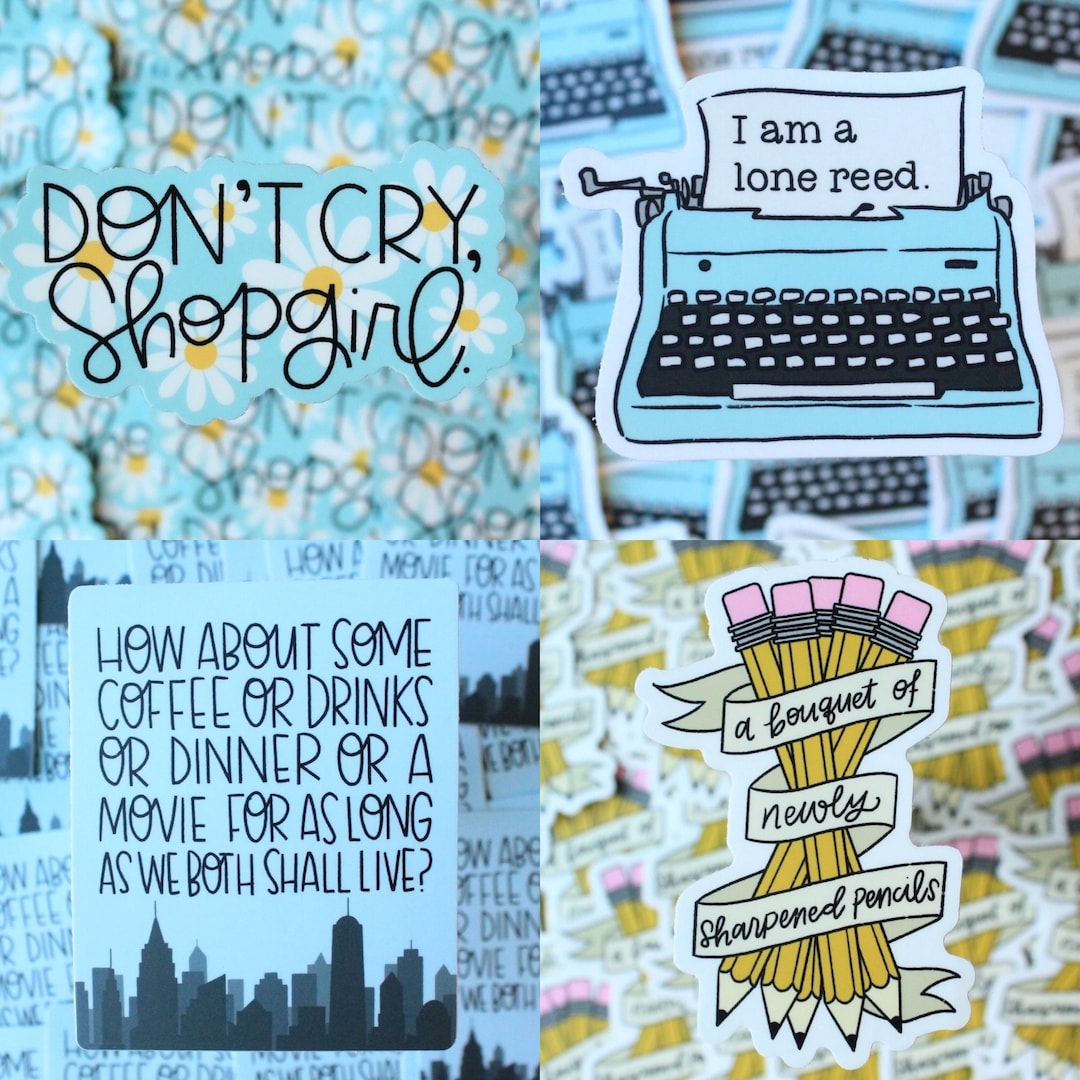 DON'T CRY,
Shopgirl.
I am a
lone reed.
HOW ABOUT SOME
COFFEE OR DRINKS
OR DINNER OR A
MOVIE FOR AS LONG
AS WE BOTH SHALL LIVE?
a bouquet of
newly
sharpened pencils